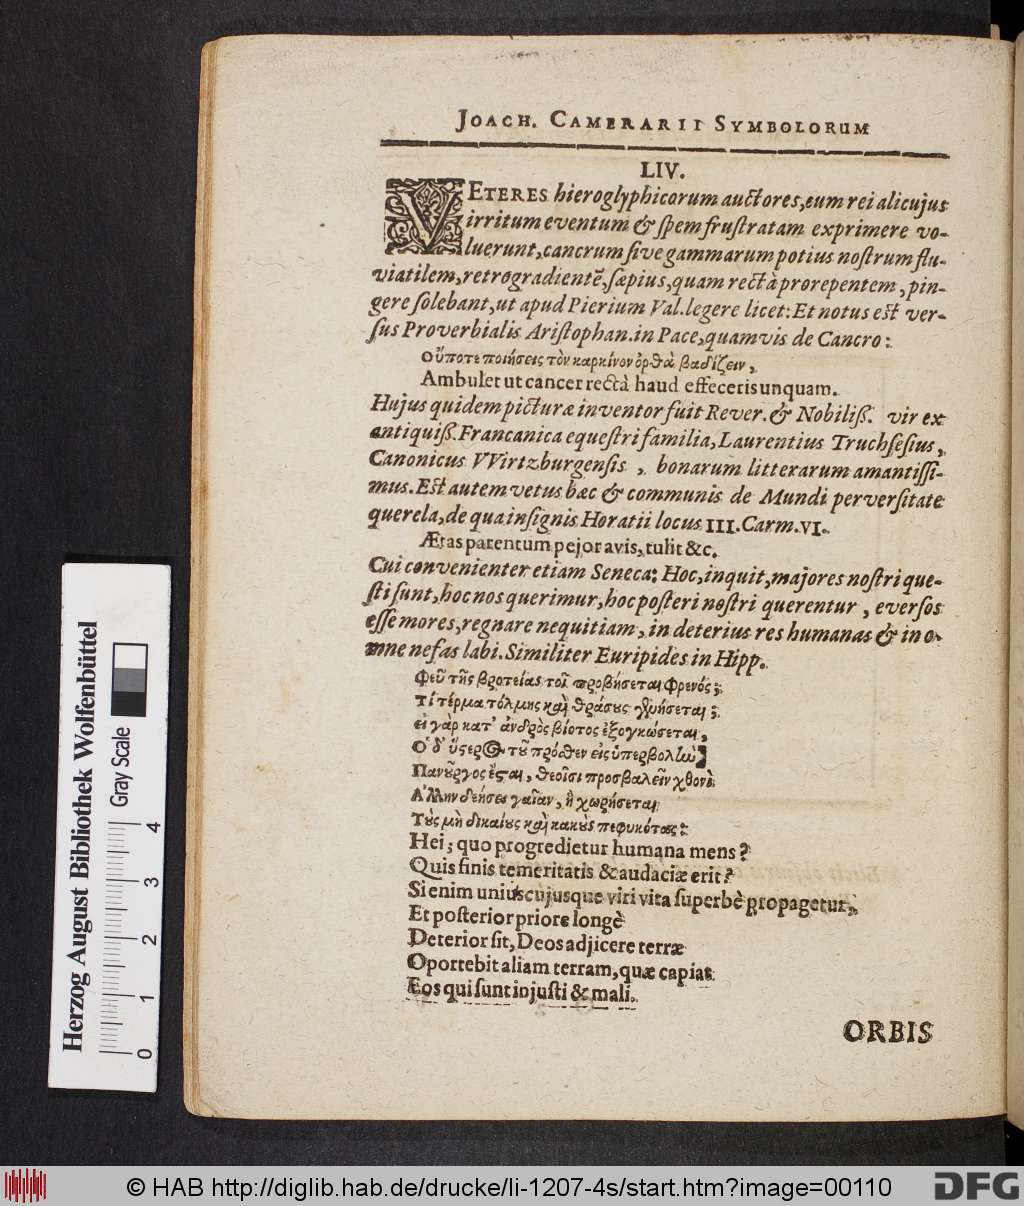 JOACH. CAMERARII SYMBOLORUM
LIV.
VETERES hieroglyphicorum auctores, cum rei alicujus
irritum eventum & spem frustratam exprimere vo-
luerunt, cancrum sive gammarum potius nostrum flu-
viatilem, retrogradientē, sæpius, quam rectà prorepentem, pin-
gere solebant, ut apud Pierium Val. legere licet: Et notus est ver-
sus Proverbialis Aristophan. in Pace, quamvis de Cancro:
Οὔποτε ποιήσεις τὸν καρκίνον ὀρθὰ βαδίζειν,
Ambulet ut cancer rectà haud effeceris unquam.
Hujus quidem picturæ inventor fuit Rever. & Nobiliß. vir ex
antiquiß. Francanica equestri familia, Laurentius Truchsesius,
Canonicus VVirtzburgensis, bonarum litterarum amantissi-
mus. Est autem vetus hæc & communis de Mundi perversitate
querela, de qua insignis Horatii locus III. Carm. VI.
Ætas parentum pejor avis, tulit &c.
Cui convenienter etiam Seneca: Hoc, inquit, majores nostri que-
sti sunt, hoc nos querimur, hoc posteri nostri querentur, eversos
esse mores, regnare nequitiam, in deterius res humanas & in o-
mne nefas labi. Similiter Euripides in Hipp.
Φεῦ τῆς βροτείας ποῖ προβήσεται φρενός;
Τί τέρμα τόλμης καὶ θράσους γενήσεται;
εἰ γὰρ κατ' ἀνδρὸς βίοτος ἐξογκώσεται,
Ὁ δ' ὕστερος τοῦ πρόσθεν εἰς ὑπερβολὴν
Πανοῦργος ἔσται, θεοῖσι προσβαλεῖν χθονὶ
Ἄλλην δεήσει γαῖαν, ἣ χωρήσεται
Τοὺς μὴ δικαίους καὶ κακοὺς πεφυκότας:
Hei, quo progredietur humana mens?
Quis finis temeritatis & audaciæ erit?
Si enim uniuscujusque viri vita superbè propagetur,
Et posterior priore longè
Deterior sit, Deos adjicere terræ
Oportebit aliam terram, quæ capiat
Eos qui sunt injusti & mali.
ORBIS
Herzog August Bibliothek Wolfenbüttel
Gray Scale
0 1 2 3 4
© HAB http://diglib.hab.de/drucke/li-1207-4s/start.htm?image=00110
DFG